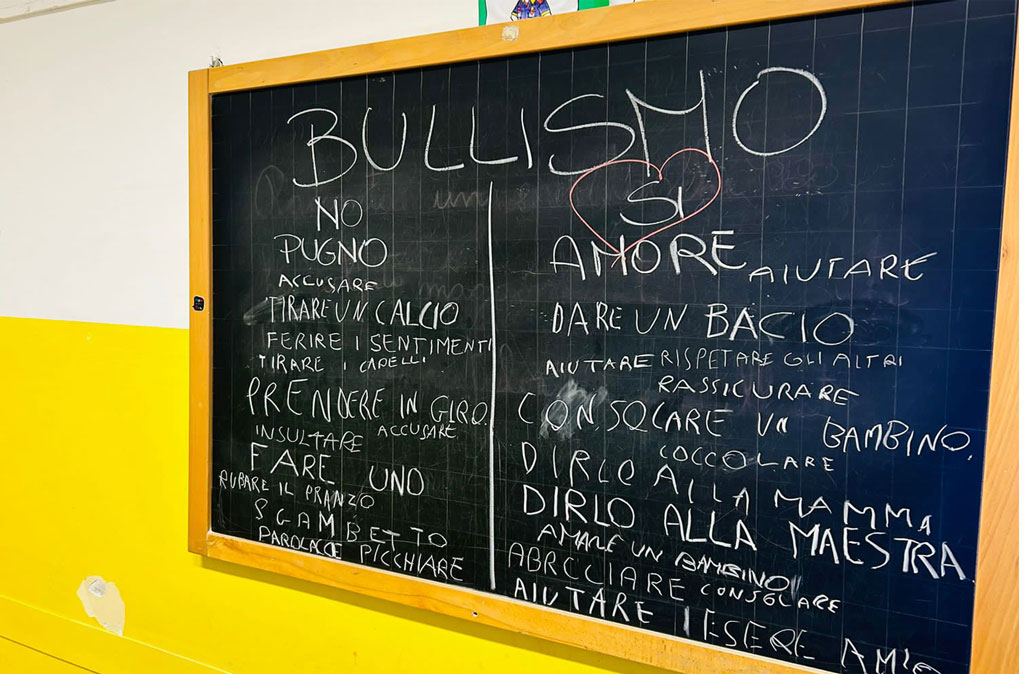 BULLISMO
NO
PUGNO
ACCUSARE
TIRARE UN CALCIO
FERIRE I SENTIMENTI
TIRARE I CAPELLI
PRENDERE IN GIRO.
INSULTARE ACCUSARE
FARE UNO
RUBARE IL PRANZO
SGAMBETTO
PAROLACCE PICCHIARE
SI
AMORE AIUTARE
DARE UN BACIO
AIUTARE RISPETARE GLI ALTRI
RASSICURARE
CONSOLARE UN BAMBINO.
COCCOLARE
DIRLO ALLA MAMMA
DIRLO ALLA MAESTRA
AMARE UN BAMBINO
ABRCCIARE CONSOLARE
AIUTARE ESERE AMIC